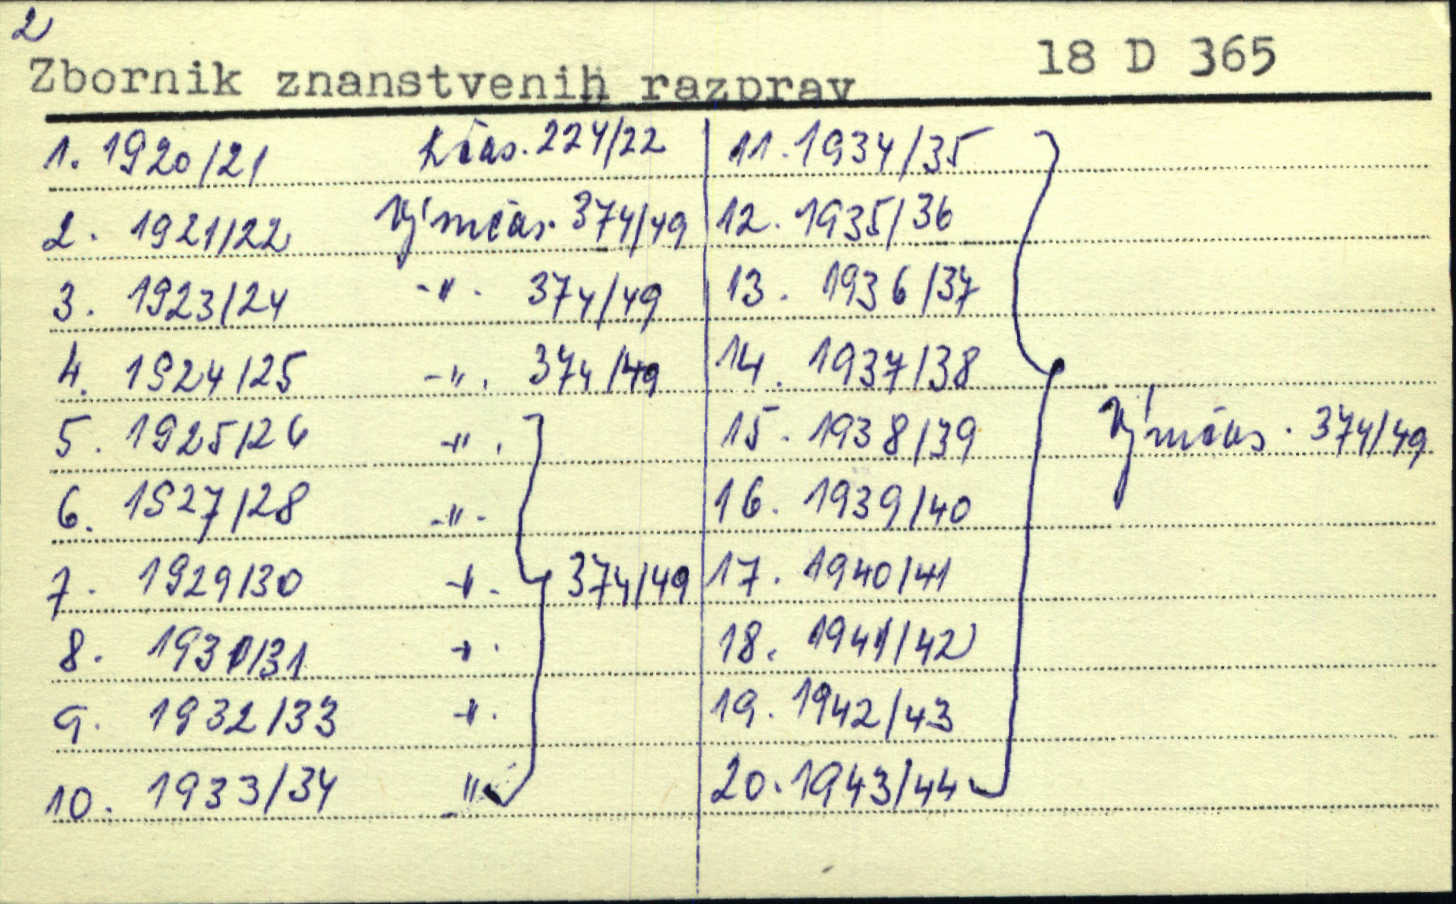 2
Zbornik znanstvenih razprav 18 D 365
1. 1920/21 224/22
2. 1921/22 Vým čas. 374/49
3. 1923/24 -"- 374/49
4. 1924/25 -"- 374/49
5. 1925/26 -"-
6. 1927/28 -"-
7. 1929/30 -"- 374/49
8. 1930/31 -"-
9. 1932/33 -"-
10. 1933/34 -"-
11. 1934/35
12. 1935/36
13. 1936/37
14. 1937/38
15. 1938/39 Vým čas. 374/49
16. 1939/40
17. 1940/41
18. 1941/42
19. 1942/43
20. 1943/44